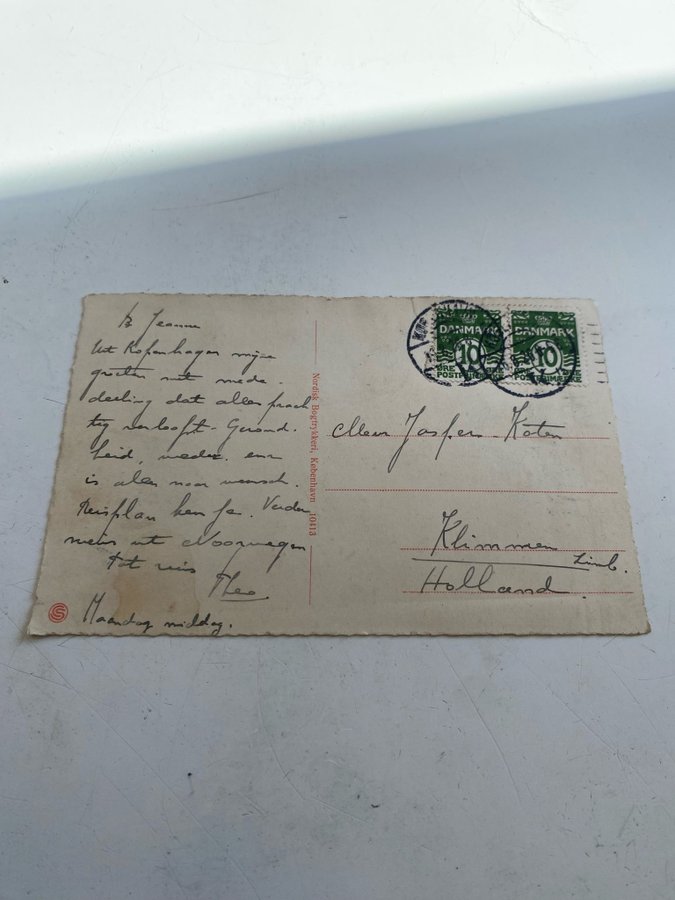 B Jeanne
Uit Kopenhagen mijne
groeten met mede-
deeling dat alles prach
tig verloopt. Gezond-
heid, weder, enz
is alles naar wensch.
Reisplan ken je. Verder
nieuws uit Noorwegen
Tot ziens
Theo
Maandag middag.
Nordisk Bogtrykkeri, København 10413
DANMARK
10
ØRE
DANMARK
10
Mevr Jaspers-Koten
Klimmen
Limb.
Holland